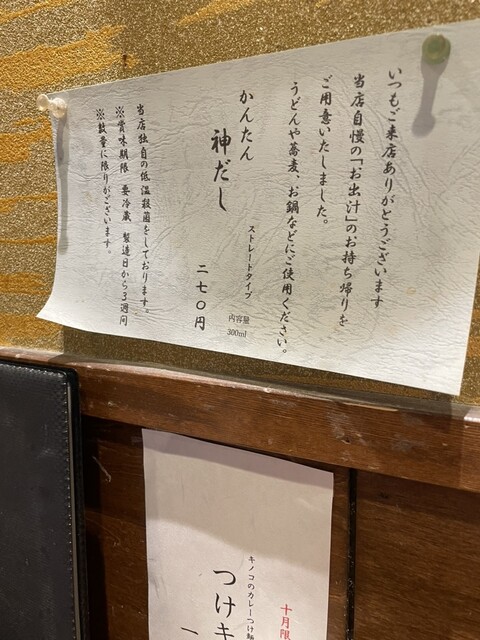 いつもご来店ありがとうございます
当店自慢の「お出汁」のお持ち帰りを
ご用意いたしました。
うどんや蕎麦、お鍋などにご使用ください。
かんたん
神だし
ストレートタイプ
内容量
300ml
二七〇円
当店独自の低温殺菌をしております。
※賞味期限 要冷蔵 製造日から3週間
※数量に限りがございます。
十月限
キノコのカレーつけ麺
つけキ